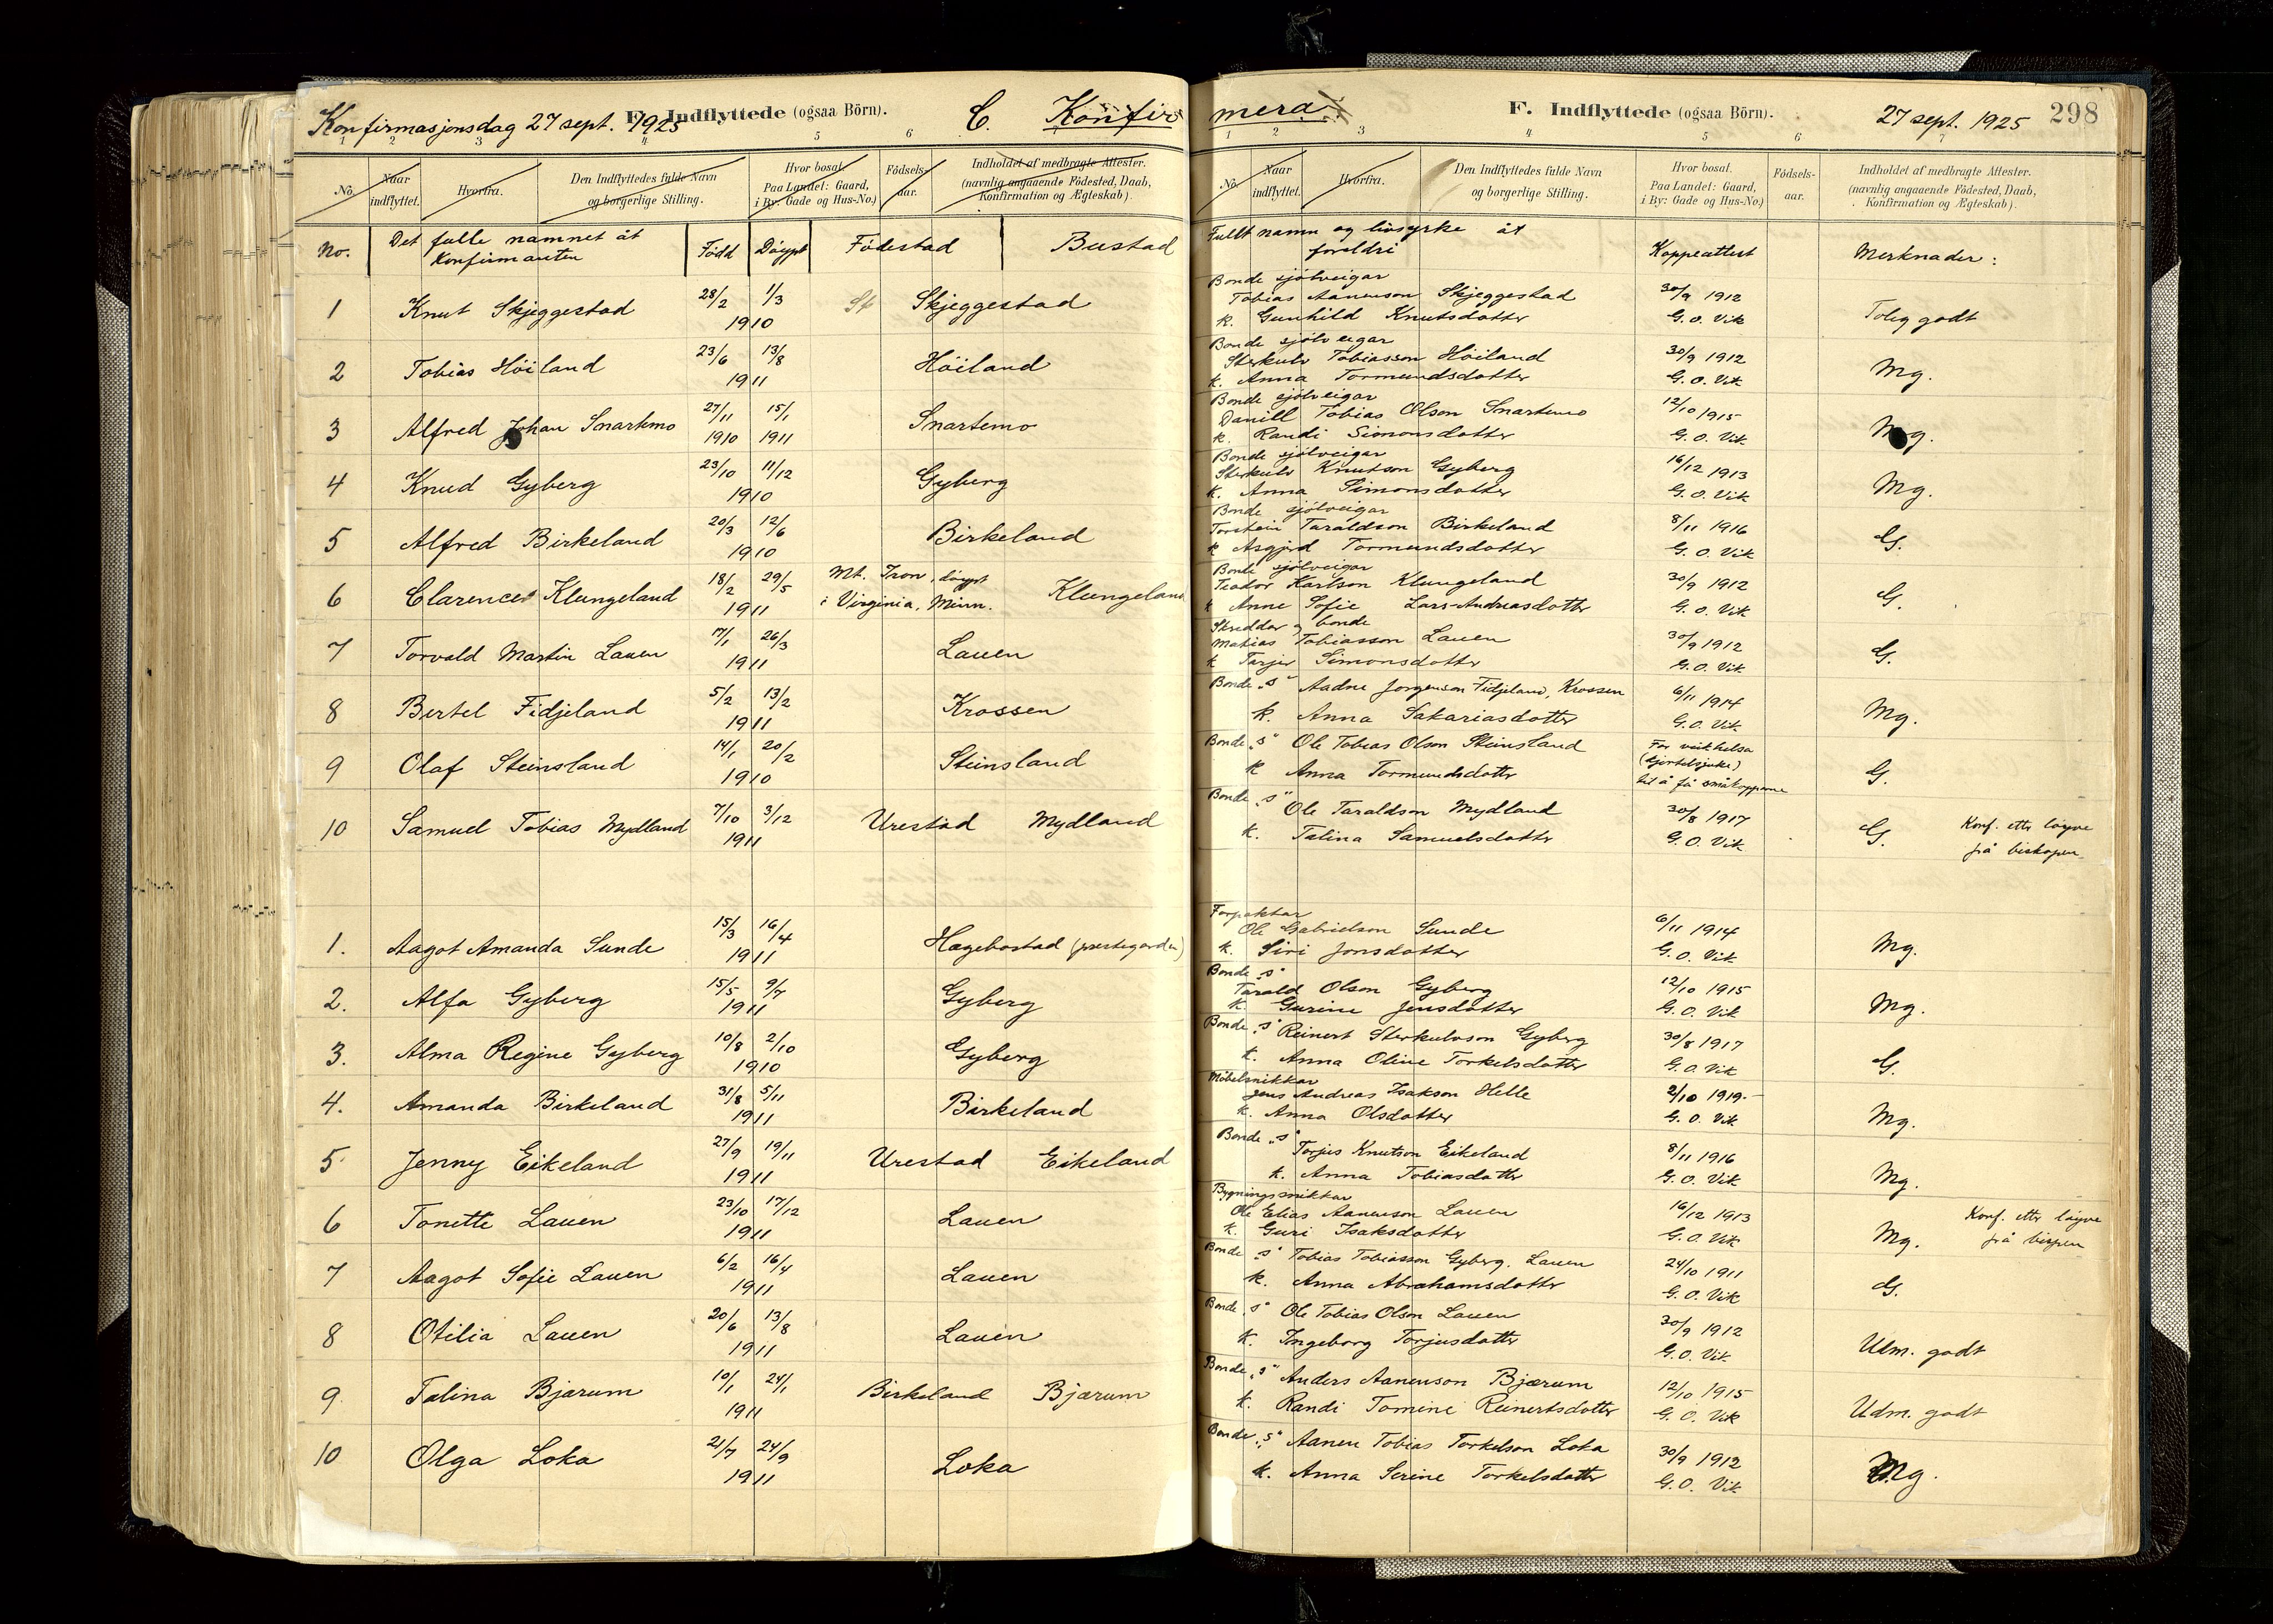 Konfirmasjonsdag 27 sept. 1925
F. Indflyttede (ogsaa Börn).
C. Konfirmera
F. Indflyttede (ogsaa Börn).
27 sept. 1925
298
1 2 3 4 5 6
1 2 3 4 5 6 7
No. Naar indflyttet. Hvorfra. Den Indflyttedes fulde Navn og borgerlige Stilling. Hvor bosat. Paa Landet: Gaard, i By: Gade og Hus-No.) Födsels-aar. Indholdet af medbragte Attester. (navnlig angaaende Födested, Daab, Konfirmation og Ægteskab).
No. Naar indflyttet. Hvorfra. Den Indflyttedes fulde Navn og borgerlige Stilling. Hvor bosat. Paa Landet: Gaard, i By: Gade og Hus-No.) Födsels-aar. Indholdet af medbragte Attester. (navnlig angaaende Födested, Daab, Konfirmation og Ægteskab).
No. Det fulle namnet åt Konfirmanten Född Döypt Födestad Bustad
Fullt namn og livsyrke åt foreldri Koppeattest Merknader:
1 Knut Skjeggestad 28/2 1/3 1910 Skjeggestad
Bonde sjölveigar
Tobias Aanenson Skjeggestad 30/9 1912
k. Gunhild Knutsdotter G. O. Vik Toleg godt
2 Tobias Höiland 23/6 13/8 1911 Höiland
Bonde sjölveigar
Sterkulv Tobiasson Höiland 30/9 1912
k. Anna Tormundsdotter G. O. Vik Mg.
3 Alfred Johan Snartemo 27/11 1910 15/1 1911 Snartemo
Bonde sjölveigar
Daniel Tobias Olson Snartemo 12/10 1915
k. Randi Simonsdotter G. O. Vik Mg.
4 Knud Gyberg 23/10 11/12 1910 Gyberg
Bonde sjölveigar
Sterkulv Knutson Gyberg 16/12 1913
k. Anna Simonsdotter G. O. Vik Mg.
5 Alfred Birkeland 20/3 12/6 1910 Birkeland
Bonde sjölveigar
Torstein Taraldson Birkeland 8/11 1916
k Asgjerd Tormundsdotter G. O. Vik G.
6 Clarence Klungeland 18/2 29/5 1911 Mt. Iron, döypt i Virginia, Minn. Klungeland
Bonde sjölveigar
Teodor Karlson Klungeland 30/9 1912
k Anne Sofie Lars-Andreasdotter G. O. Vik G.
7 Torvald Martin Lauen 17/1 26/3 1911 Lauen
Skreddar og bonde
Matias Tobiasson Lauen 30/9 1912
k Tarjer Simonsdotter G. O. Vik G.
8 Bertel Fidjeland 5/2 13/2 1911 Krossen
Bonde "s" Aadne Jorgenson Fidjeland, Krossen 6/11 1914
k. Anna Sakariasdotter G. O. Vik Mg.
9 Olaf Steinsland 14/1 20/2 1910 Steinsland
Bonde "s" Ole Tobias Olson Steinsland For veik helsa
k Anna Tormundsdotter (hjertesjuke) til å få småkoppane G.
10 Samuel Tobias Mydland 7/10 3/12 1911 Urestad Mydland
Bonde "s" Ole Taraldson Mydland 30/8 1917
k. Talina Samuelsdotter G. O. Vik G. Konf. etter löyve frå biskopen
1. Aagot Amanda Sunde 15/3 16/4 1911 Hægebostad (prestegarden)
Forpaktar
Ole Gabrielson Sunde 6/11 1914
k. Siri Jonsdotter G. O. Vik Mg.
2. Alfa Gyberg 15/5 9/7 1911 Gyberg
Bonde "s"
Tarald Olson Gyberg 12/10 1915
k. Gurine Jensdotter G. O. Vik Mg.
3. Alma Regine Gyberg 10/8 2/10 1910 Gyberg
Bonde "s" Reinert Sterkulvson Gyberg 30/8 1917
k. Anna Oline Torkelsdotter G. O Vik G.
4. Amanda Birkeland 31/8 5/11 1911 Birkeland
Möbelsnikkar
Jens Andreas Isakson Helle 2/10 1919.
k. Anna Olsdotter G. O. Vik Mg.
5 Jenny Eikeland 27/9 19/11 1911 Urestad Eikeland
Bonde "s" Torjus Knutson Eikeland 8/11 1916
k. Anna Tobiasdotter G. O. Vik Mg.
6 Tonette Lauen 23/10 17/12 1911 Lauen
Bygningssnikkar
Ole Elias Aanenson Lauen 16/12 1913
k. Guri Isaksdotter G. O. Vik Mg. Konf. etter löyve frå bispen
7 Aagot Sofie Lauen 6/2 16/4 1911 Lauen
Bonde "s" Tobias Tobiasson Gyberg. Lauen 24/10 1911
k. Anna Abrahamsdotter G. O. Vik G.
8 Otilia Lauen 20/6 13/8 1911 Lauen
Bonde "s" Ole Tobias Olson Lauen 30/9 1912
k. Ingeborg Torjusdotter G. O. Vik Udm. godt
9. Talina Bjærum 10/1 24/1 1911 Birkeland Bjærum
Bonde "s" Anders Aanenson Bjærum 12/10 1915
k. Randi Tomine Reinertsdotter G. O. Vik Udm. godt
10 Olga Loka 21/7 24/9 1911 Loka
Bonde "s" Aanen Tobias Torkelson Loka 30/9 1912
k. Anna Serine Torkelsdotter G. O. Vik Mg.